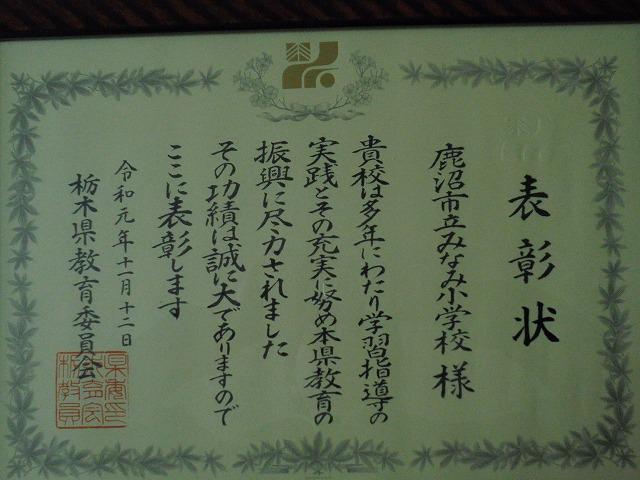 表彰状
鹿沼市立みなみ小学校様
貴校は多年にわたり学習指導の
実践とその充実に努め本県教育の
振興に尽力されました
その功績は誠に大でありますので
ここに表彰します
令和元年十一月十二日
栃木県教育委員会